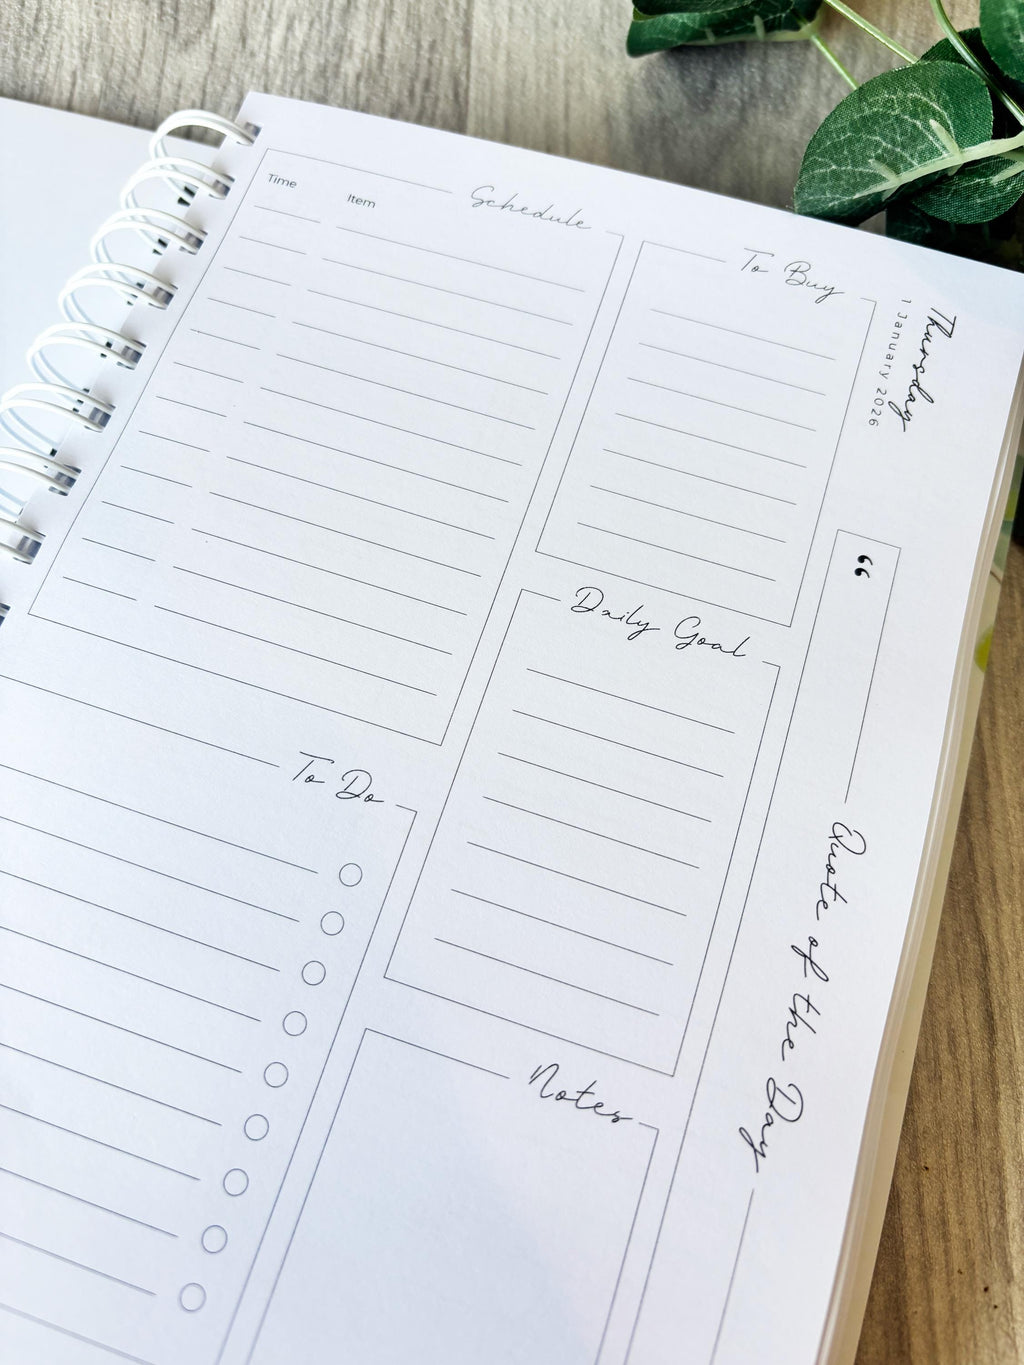 Thursday
1 January 2026
Schedule
Time
Item
To Buy
Daily Goal
To Do
Notes
“
Quote of the Day